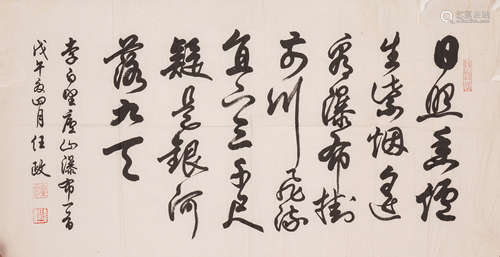 日照香爐
生紫烟遥
看瀑布掛
前川飛流
直下三千尺
疑是銀河
落九天
李白望廬山瀑布一首
戊午夏四月任政